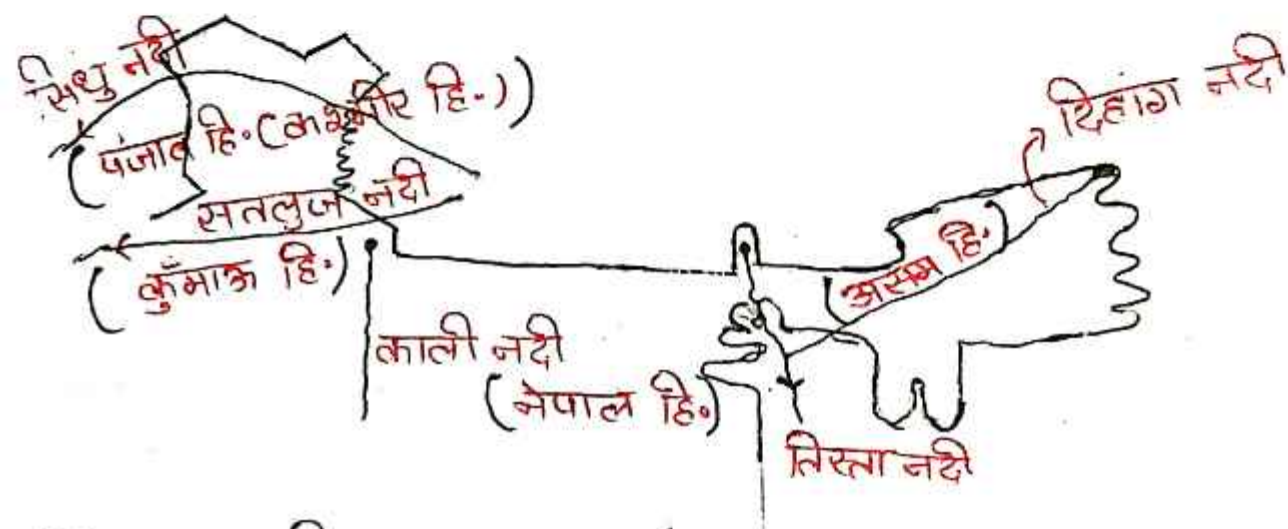 सिंधु नदी
(पंजाब हि॰ (कश्मीर हि॰))
सतलुज नदी
(कुँमाऊ हि॰)
काली नदी
(नेपाल हि॰)
तिस्ता नदी
(असम हि॰)
दिहांग नदी